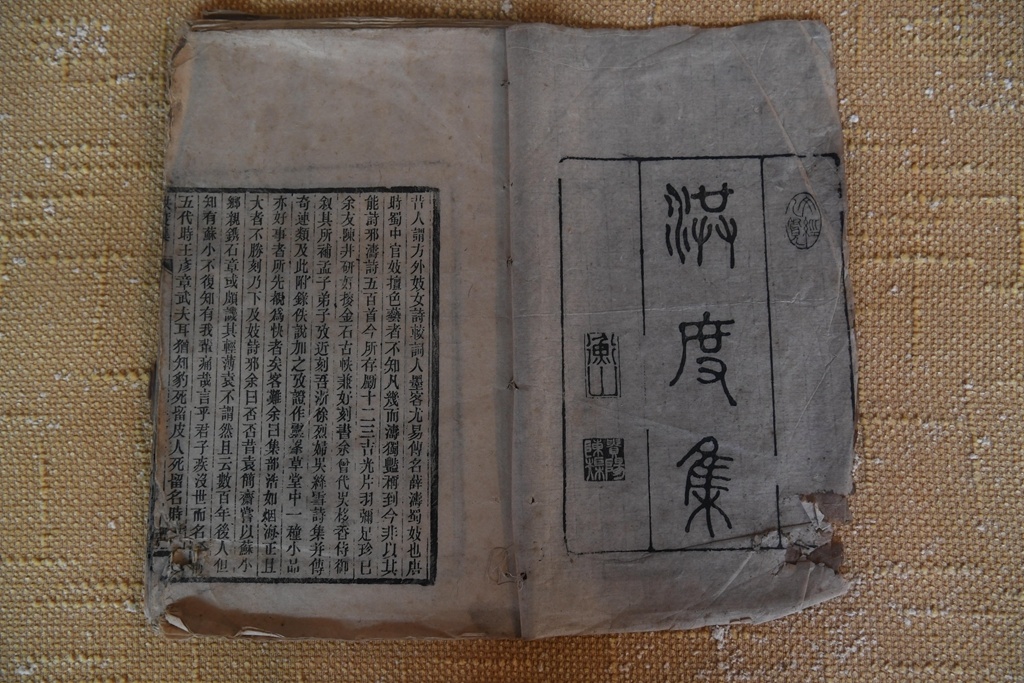 洪度集
衡山
昔人謂方外妓女詩較詞人墨客尤易傳名薛濤蜀妓也唐
時蜀中官妓擅色藝者不知凡幾而濤獨豔稱到今非以其
能詩邪濤詩五百首今所存勵十二三吉光片羽彌足珍已
余友陳井研好搜金石古帙兼好刻書余曾代吴移香侍御
叙其所補孟子弟子攷近刻吾浙徐烈婦吴絳雪詩集并傳
奇連類及此附錄佚說加之攷證作靈峯草堂中一種小品
亦好事者所先覩爲快者矣客難余曰集部浩如烟海正且
大者不勝刻乃下及妓詩邪余曰否否昔袁簡齋嘗以蘇小
鄉親鐫石章或頗譏其輕薄袁不謂然且云數百年後人但
知有蘇小不復知有我輩痛哉言乎君子疾沒世而名
五代時王彦章武夫耳猶知豹死留皮人死留名時